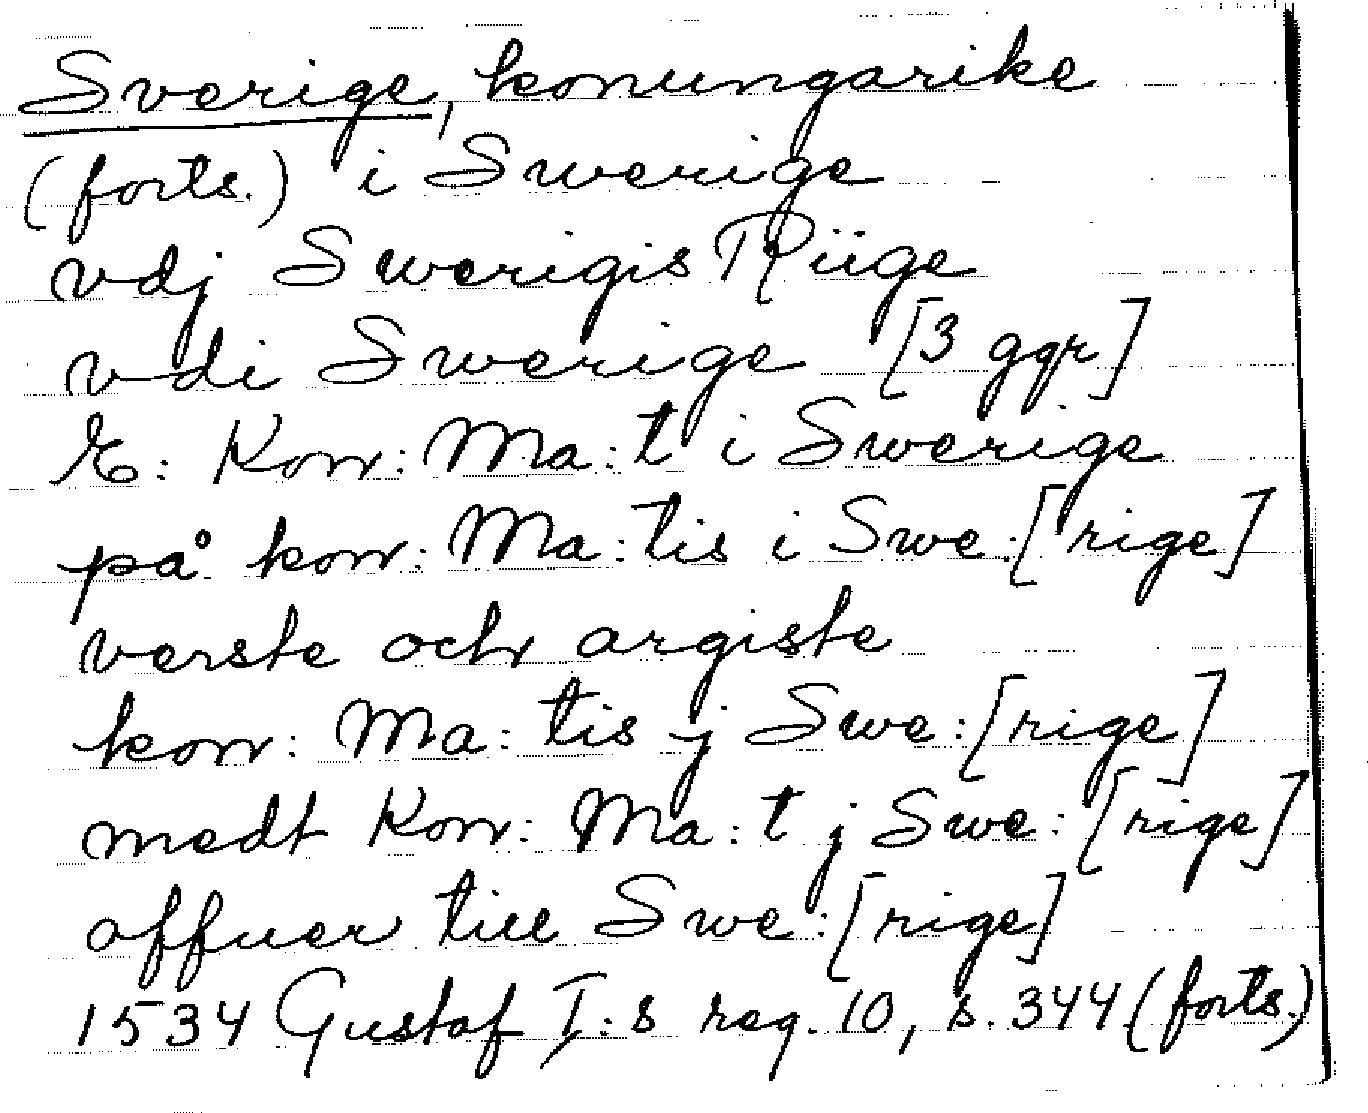 Sverige, konungarike
(forts.) i Swerige
vdj Swerigis Riige
vdi Swerige [3 ggr]
E: Kon: Ma:t i Swerige
på kon: Ma:tis i Swe:[rige]
verste och argiste
kon: Ma:tis j Swe:[rige]
medt Kon: Ma:t j Swe:[rige]
offuer till Swe:[rige]
1534 Gustaf I:s reg. 10, s. 344 (forts.)